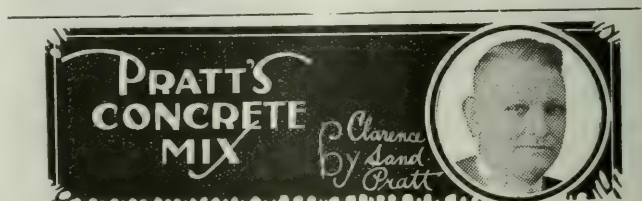 PRATT'S
CONCRETE
MIX
By Clarence
Sand
Pratt